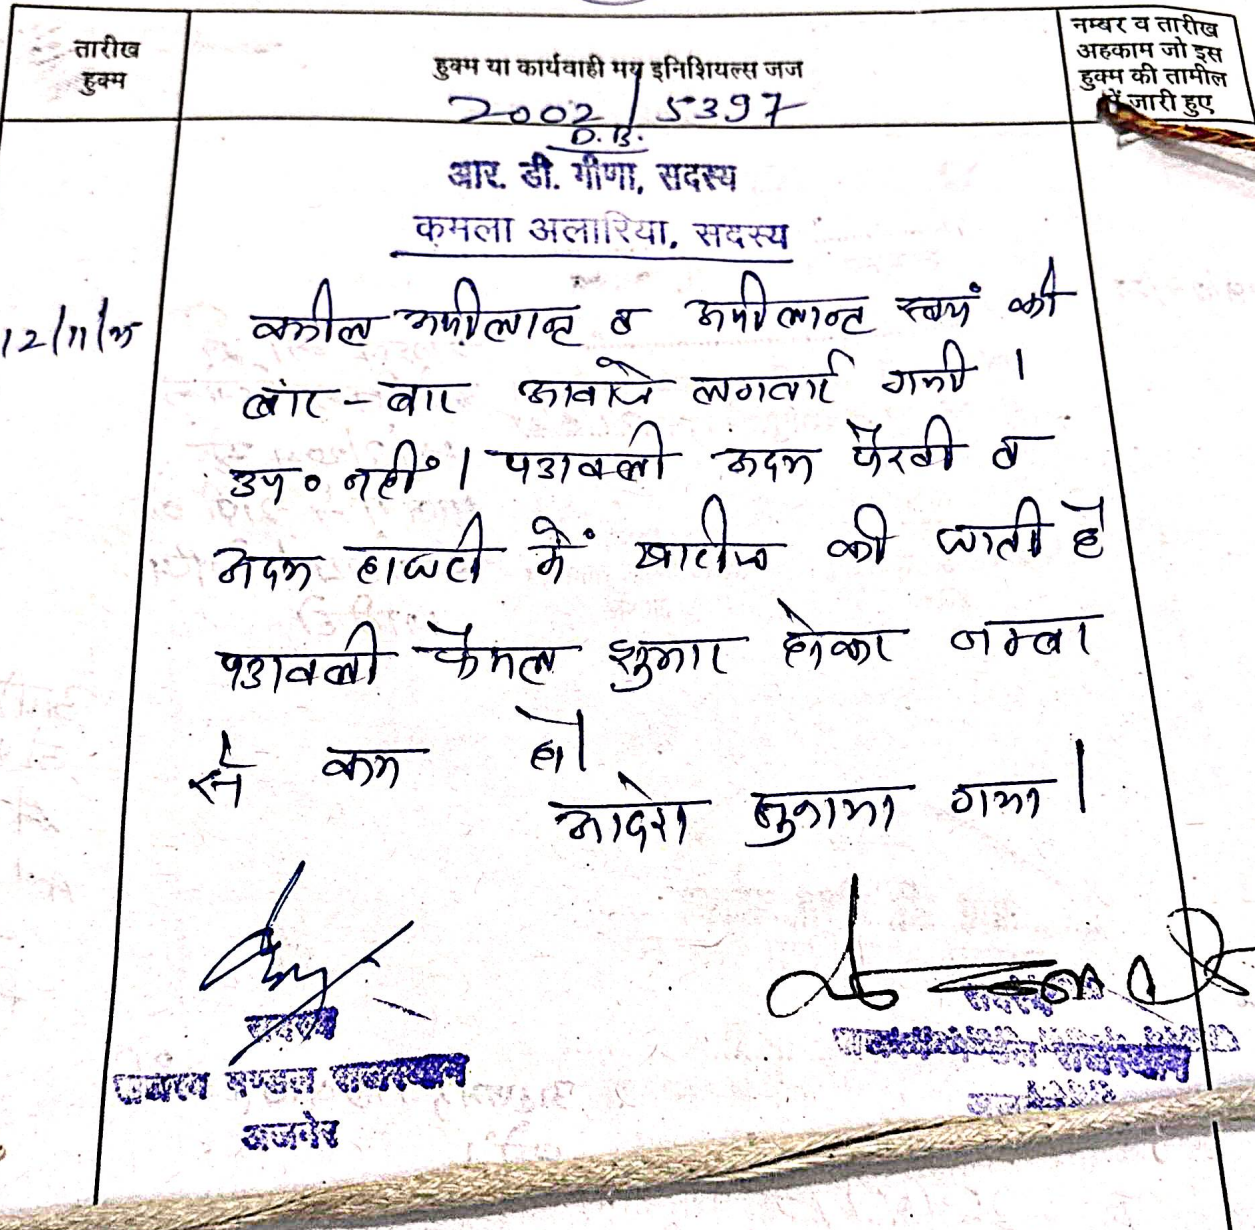 तारीख
हुक्म
हुक्म या कार्यवाही मय इनिशियल्स जज
नम्बर व तारीख
अहकाम जो इस
हुक्म की तामील
में जारी हुए
2002/5397
D.B.
आर. डी. मीणा, सदस्य
कमला अलारिया, सदस्य
12/11/
वकील अपीलान्ट व अपीलान्ट स्वयं को
बार-बार आवाजे लगवाई गयी ।
उप० नहीं । पत्रावली अदम पैरवी व
अदम हाजरी में खारीज की जाती है
पत्रावली फैसल शुमार होकर नम्बर
से कम हो।
आदेश सुनाया गया ।
सदस्य
राजस्व मण्डल राजस्थान
अजमेर
सदस्य
राजस्थान